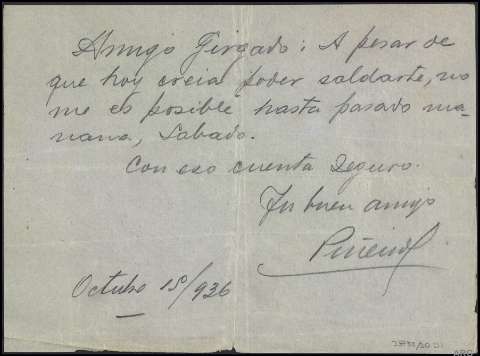 Amigo Gergado: A pesar de
que hoy creia poder saldarte, no
me es posible hasta pasado ma-
nana, Sabado.
Con eso cuenta Seguro.
Tu buen amigo
Piñeiro
Octubre 15/936
ARG